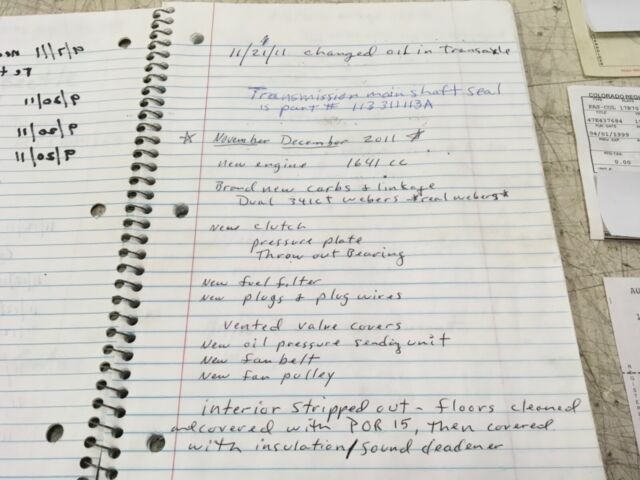 11/21/11 changed oil in Transaxle
Transmission main shaft seal
is part # 113 311 113A
* November December 2011 *
new engine 1641 cc
Brand new carbs & linkage
Dual 34ict webers *real webers*
New clutch
pressure plate
Throw out Bearing
New fuel filter
New plugs & plug wires
Vented valve covers
New oil pressure sending unit
New fan belt
New fan pulley
interior stripped out - floors cleaned
and covered with POR 15, then covered
with insulation/sound deadener
9/7/11
9/20/11
9/20/11
9/20/11
COLORADO REG
PAS-COL
47E437684
04/01/1999
0.00
AU